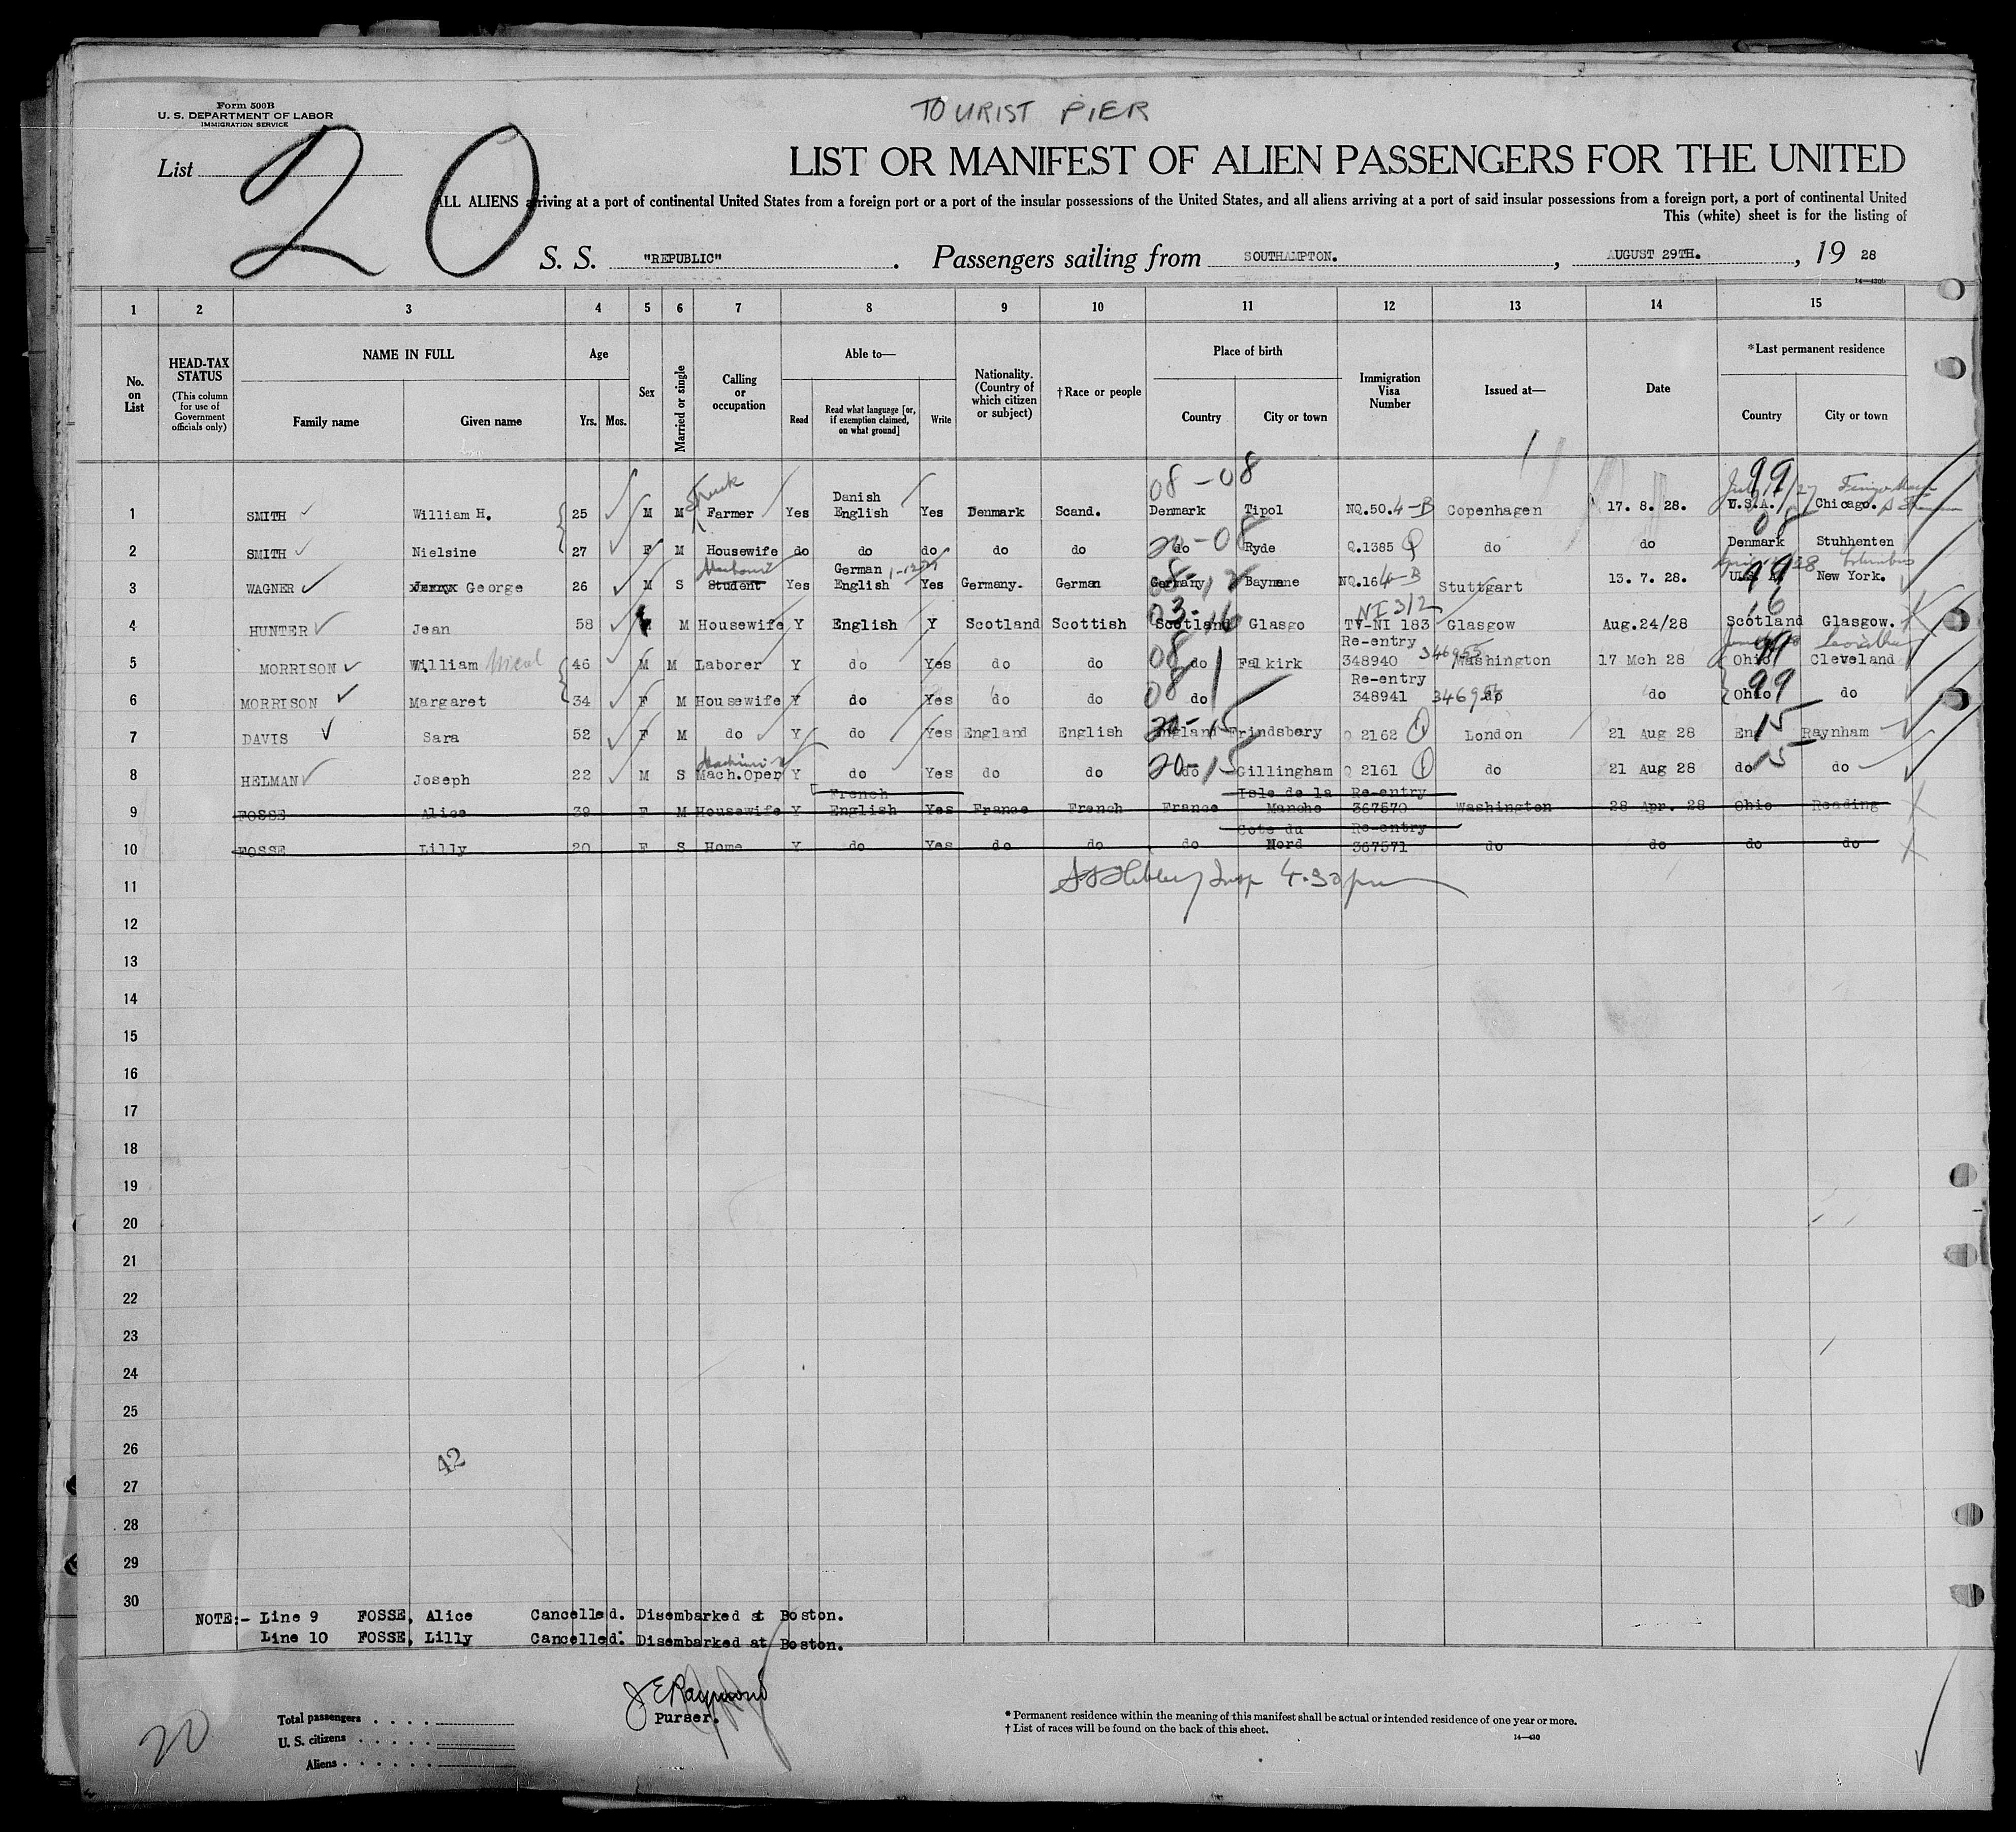 TOURIST PIER
Form 500B
U. S. DEPARTMENT OF LABOR
IMMIGRATION SERVICE
List 20
LIST OR MANIFEST OF ALIEN PASSENGERS FOR THE UNITED
ALL ALIENS arriving at a port of continental United States from a foreign port or a port of the insular possessions of the United States, and all aliens arriving at a port of said insular possessions from a foreign port, a port of continental United
This (white) sheet is for the listing of
S. S. "REPUBLIC" . Passengers sailing from SOUTHAMPTON. , AUGUST 29TH. , 19 28
14—430
1 2 3 4 5 6 7 8 9 10 11 12 13 14 15
No. on List HEAD-TAX STATUS (This column for use of Government officials only) NAME IN FULL Family name Given name Age Yrs. Mos. Sex Married or single Calling or occupation Able to— Read Read what language [or, if exemption claimed, on what ground] Write Nationality. (Country of which citizen or subject) † Race or people Place of birth Country City or town Immigration Visa Number Issued at— Date * Last permanent residence Country City or town
08-08 99
1 SMITH William H. 25 M M Farmer Yes Danish English Yes Denmark Scand. Denmark Tipol NQ.50.4-B Copenhagen 17. 8. 28. U.S.A. Chicago.
2 SMITH Nielsine 27 F M Housewife do do do do do do 20-08 Ryde Q.1385 do do Denmark 08 Stuhhenten
3 WAGNER George 26 M S Student Yes German English 1-12-29 Yes Germany. German Germany Baymane NQ.164-B Stuttgart 13. 7. 28. U.S.A. 99 New York.
4 HUNTER Jean 58 M Housewife Y English Y Scotland Scottish Scotland 03-16 Glasgo NI 312 TV-NI 183 Glasgow Aug.24/28 Scotland 16 Glasgow.
5 MORRISON William 46 M M Laborer Y do Yes do do 08 do Falkirk Re-entry 348940 346955 Washington 17 Mch 28 Ohio 99 Cleveland
6 MORRISON Margaret 34 F M Housewife Y do Yes do do 08 do Re-entry 348941 346956 do do Ohio 99 do
7 DAVIS Sara 52 F M do Y do Yes England English England 20-15 Frindsbery Q 2162 London 21 Aug 28 Eng 15 Raynham
8 HELMAN Joseph 22 M S Machinist Mach.Oper Y do Yes do do do 20-15 Gillingham Q 2161 do 21 Aug 28 do 15 do
9 FOSSE Alice 39 F M Housewife Y French English Yes France French France Isle de la Manche Re-entry 367570 Washington 28 Apr. 28 Ohio Reading
10 FOSSE Lilly 20 F S Home Y do Yes do do do Cote du Nord Re-entry 367571 do do do do
11 Insp 4.30 pm
12
13
14
15
16
17
18
19
20
21
22
23
24
25
26
42
27
28
29
30
NOTE:- Line 9 FOSSE, Alice Cancelled. Disembarked at Boston.
Line 10 FOSSE, Lilly Cancelled. Disembarked at Boston.
J E Raymond
Purser.
20
Total passengers
U. S. citizens
Aliens
* Permanent residence within the meaning of this manifest shall be actual or intended residence of one year or more.
† List of races will be found on the back of this sheet.
14—430